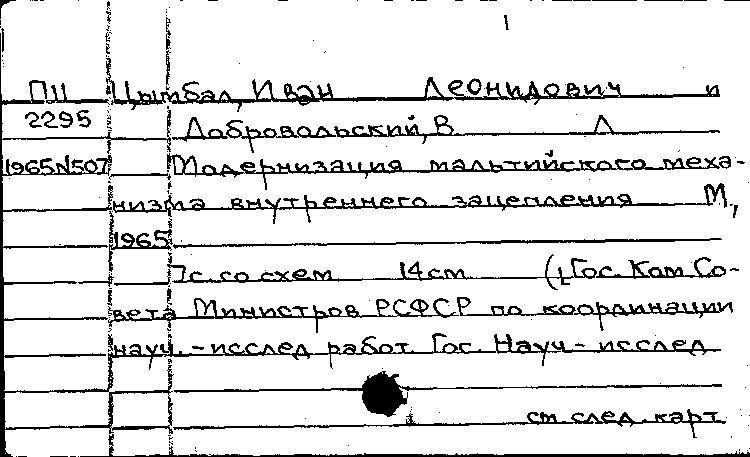 1
П11 Цымбал, Иван Леонидович и
2295 Добровольский, В Л
1965N507 Модернизация мальтийского меха-
низма внутреннего зацепления М,
1965
7с. со схем 14 см (Гос. Ком Со-
вета Министров РСФСР по координации
науч. - исслед работ. Гос. Науч - исслед
см. след. карт